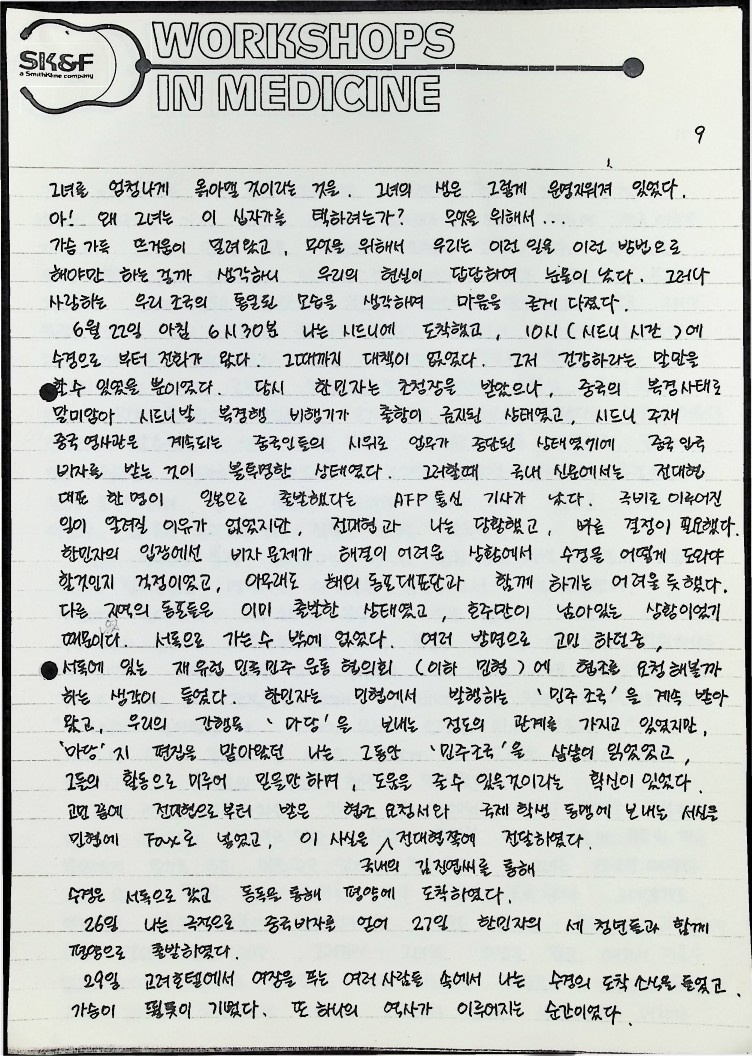 SK&F
a SmithKline company
WORKSHOPS
IN MEDICINE
9
그녀를 엄청나게 옭아맬 것이라는 것을. 그녀의 생은 그렇게 운명지워져 있었다.
아! 왜 그녀는 이 십자가를 택하려는가? 무엇을 위해서...
가슴 가득 뜨거움이 밀려왔고, 무엇을 위해서 우리는 이런 일을 이런 방법으로
해야만 하는 걸까 생각하니 우리의 현실이 답답하여 눈물이 났다. 그러나
사랑하는 우리 조국의 통일된 모습을 생각하며 마음을 굳게 다졌다.
6월 22일 아침 6시 30분 나는 시드니에 도착했고, 10시 (시드니 시간)에
수경으로 부터 전화가 왔다. 그때까지 대책이 없었다. 그저 건강하라는 말만을
할 수 있었을 뿐이었다. 당시 한민자는 초청장을 받았으나, 중국의 북경사태로
말미암아 시드니발 북경행 비행기가 출항이 금지된 상태였고, 시드니 주재
중국 영사관은 계속되는 중국인들의 시위로 업무가 중단된 상태였기에 중국 입국
비자를 받는 것이 불투명한 상태였다. 그러할때 국내 신문에서는 전대협
대표 한 명이 일본으로 출발했다는 AFP 통신 기사가 났다. 극비로 이루어진
일이 알려질 이유가 없었지만, 전대협과 나는 당황했고, 빠른 결정이 필요했다.
한민자의 입장에선 비자 문제가 해결이 어려운 상황에서 수경을 어떻게 도와야
할것인지 걱정이었고, 아무래도 해외 동포대표단과 함께 하기는 어려울 듯했다.
다른 지역의 동포들은 이미 출발한 상태였고, 호주만이 남아있는 상황이었기
때문이다. 서독으로 가는 수 밖에 없었다. 여러 방면으로 고민 하던중,
서독에 있는 재유럽 민족민주 운동 협의회 (이하 민협)에 협조를 요청해볼까
하는 생각이 들었다. 한민자는 민협에서 발행하는 '민주조국'을 계속 받아
왔고, 우리의 간행물 '마당'을 보내는 정도의 관계를 가지고 있었지만,
'마당'지 편집을 맡아왔던 나는 그동안 '민주조국'을 샅샅이 읽었었고,
그들의 활동으로 미루어 믿을만 하며, 도움을 줄 수 있을것이라는 확신이 있었다.
고민 끝에 전대협으로부터 받은 협조 요청서와 국제 학생 동맹에 보내는 서식을
민협에 Fax로 넣었고, 이 사실은 전대협쪽에 전달하였다.
국내의 김진엽씨를 통해
수경은 서독으로 갔고 동독을 통해 평양에 도착하였다.
26일 나는 극적으로 중국비자를 얻어 27일 한민자의 세 청년들과 함께
평양으로 출발하였다.
29일 고려호텔에서 여장을 푸는 여러 사람들 속에서 나는 수경의 도착 소식을 들었고,
가슴이 떨듯이 기뻤다. 또 하나의 역사가 이루어지는 순간이었다.